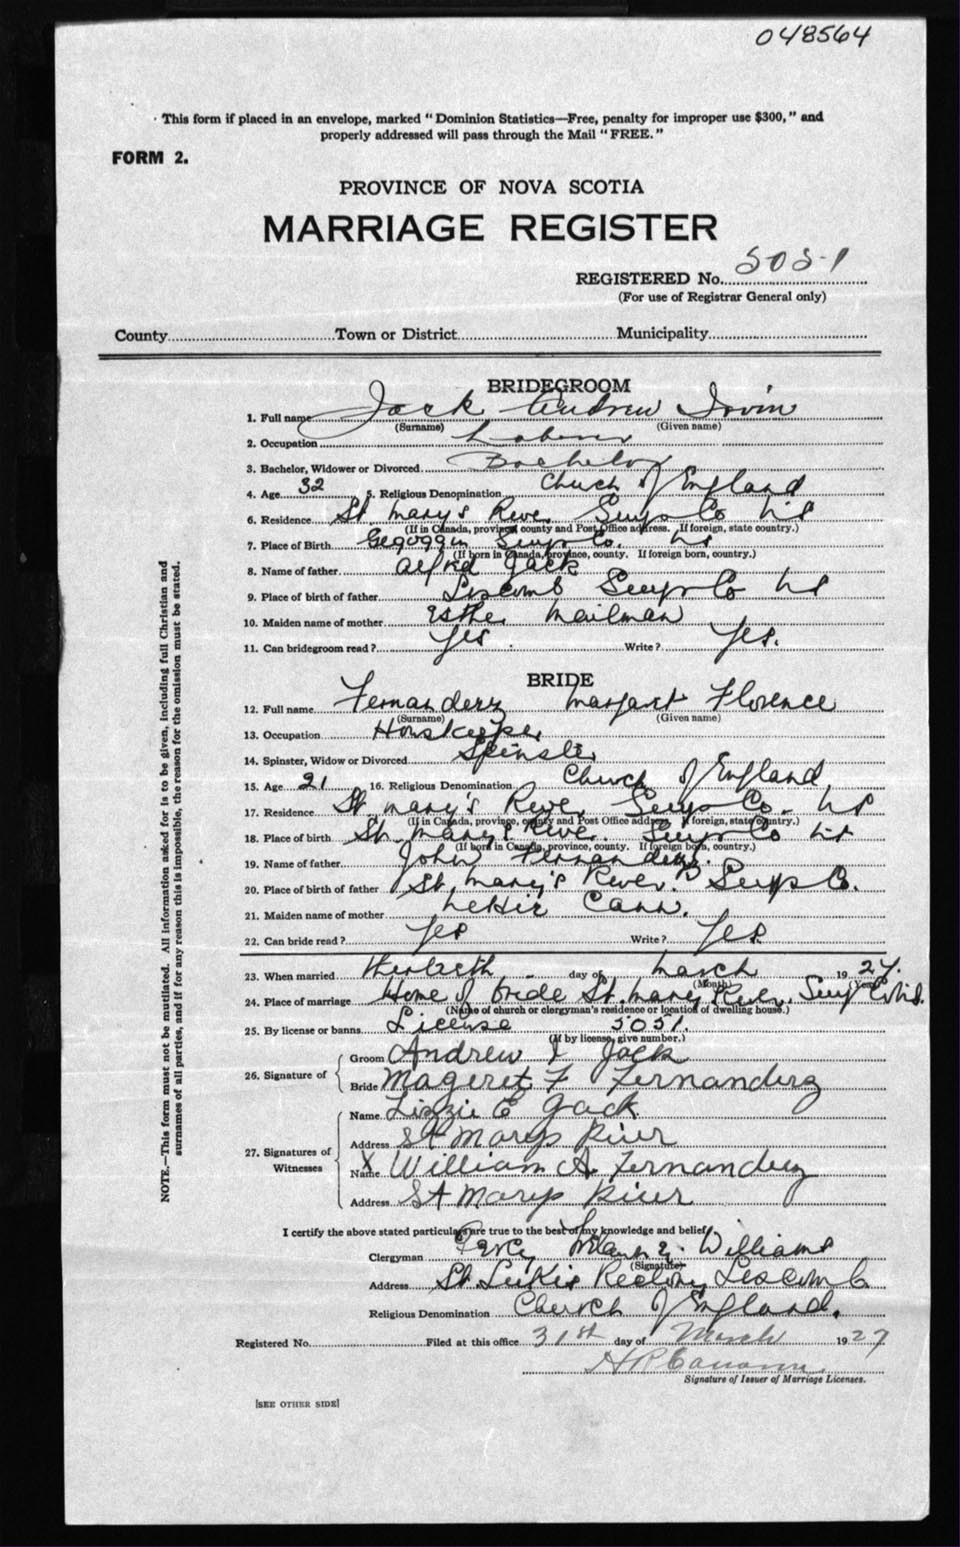 048564
This form if placed in an envelope, marked "Dominion Statistics—Free, penalty for improper use $300," and
properly addressed will pass through the Mail "FREE."
FORM 2.
PROVINCE OF NOVA SCOTIA
MARRIAGE REGISTER
REGISTERED No. 5051
(For use of Registrar General only)
County Town or District Municipality
BRIDEGROOM
1. Full name Jack Andrew Irvin
(Surname) (Given name)
2. Occupation Laborer
3. Bachelor, Widower or Divorced Bachelor
4. Age 32 5. Religious Denomination Church of England
6. Residence St Mary's River Guys Co NS
(If in Canada, province, county and Post Office address. If foreign, state country.)
7. Place of Birth Gegoggin Guys Co. NS
(If born in Canada, province, county. If foreign born, country.)
8. Name of father Alfred Jack
9. Place of birth of father Liscomb Guys Co NS
10. Maiden name of mother Esther Mailman
11. Can bridegroom read? Yes Write? Yes.
BRIDE
12. Full name Fernanderz Margaret Florence
(Surname) (Given name)
13. Occupation Housekeeper
14. Spinster, Widow or Divorced Spinster
15. Age 21 16. Religious Denomination Church of England
17. Residence St Mary's River Guys Co. NS
(If in Canada, province, county and Post Office address. If foreign, state country.)
18. Place of birth St. Mary's River. Guys Co NS
(If born in Canada, province, county. If foreign born, country.)
19. Name of father John Fernanderz.
20. Place of birth of father St. Mary's River. Guys Co.
21. Maiden name of mother Lettie Cann.
22. Can bride read? Yes Write? Yes.
23. When married day of March 1927.
(Month) (Year)
24. Place of marriage Home of bride St. Mary's River, Guys Co NS.
(Name of church or clergyman's residence or location of dwelling house.)
25. By license or banns License 5051.
(If by license, give number.)
26. Signature of
Groom Andrew I Jack
Bride Mageret F Fernanderz
27. Signatures of Witnesses
Name Lizzie E Jack
Address St Marys River
Name X William A. Fernanderz
Address St Marys River
I certify the above stated particulars are true to the best of my knowledge and belief
Clergyman Percy Williams
(Signature)
Address St. Luke's Rectory Liscomb
Religious Denomination Church of England.
Registered No. Filed at this office 31st day of March 1927
Signature of Issuer of Marriage Licenses.
[SEE OTHER SIDE]
NOTE.—This form must not be mutilated. All information asked for is to be given, including full Christian and
surnames of all parties, and if for any reason this is impossible, the reason for the omission must be stated.